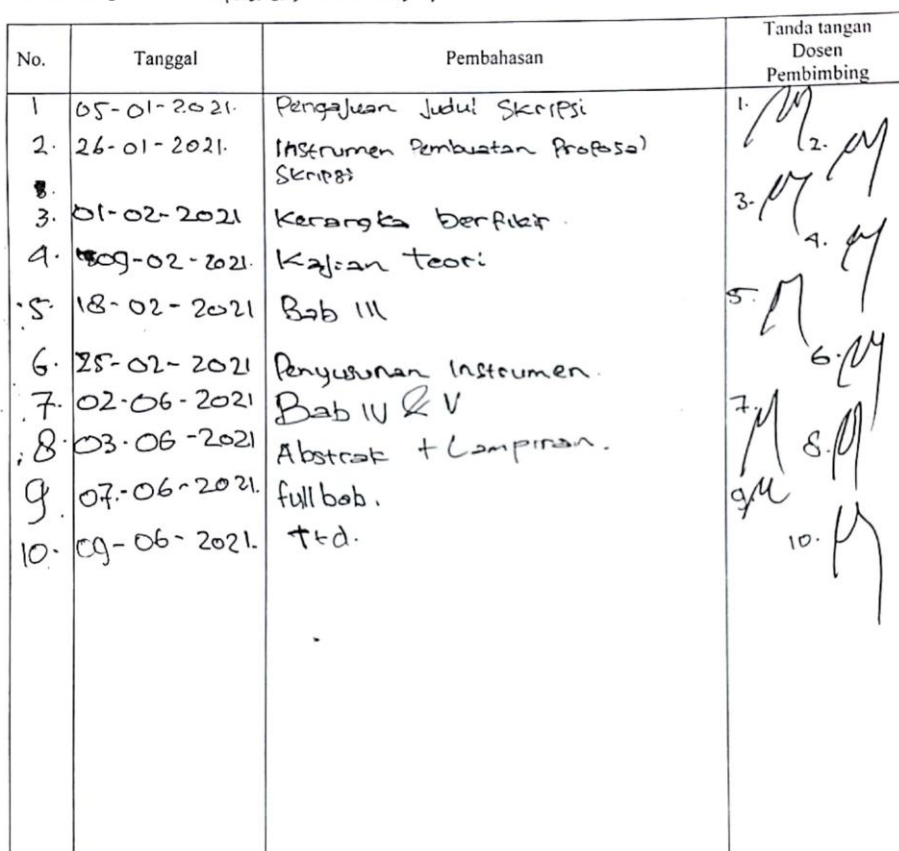 No. Tanggal Pembahasan Tanda tangan
Dosen
Pembimbing
1 05-01-2021. Pengajuan Judul Skripsi 1.
2. 26-01-2021. Instrumen Pembuatan Proposal 2.
Skripsi
3. 01-02-2021 Kerangka berfikir. 3.
4. 09-02-2021. Kajian teori 4.
5. 18-02-2021 Bab III 5.
6. 25-02-2021 Penyusunan Instrumen. 6.
7. 02-06-2021 Bab IV & V 7.
8. 03-06-2021 Abstrak + Lampiran. 8.
9. 07-06-2021. full bab. 9.
10. 09-06-2021. Ttd. 10.